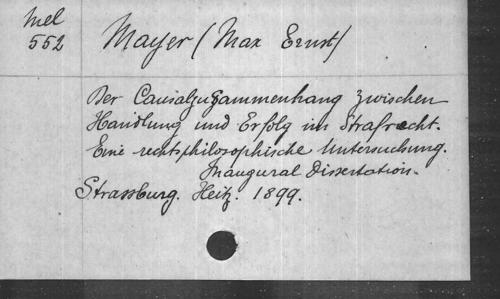 Mel
552
Mayer (Max Ernst)
Der Causalzusammenhang zwischen
Handlung und Erfolg im Strafrecht.
Eine rechtsphilosophische Untersuchung.
Inaugural Dissertation.
Strassburg. Heitz. 1899.